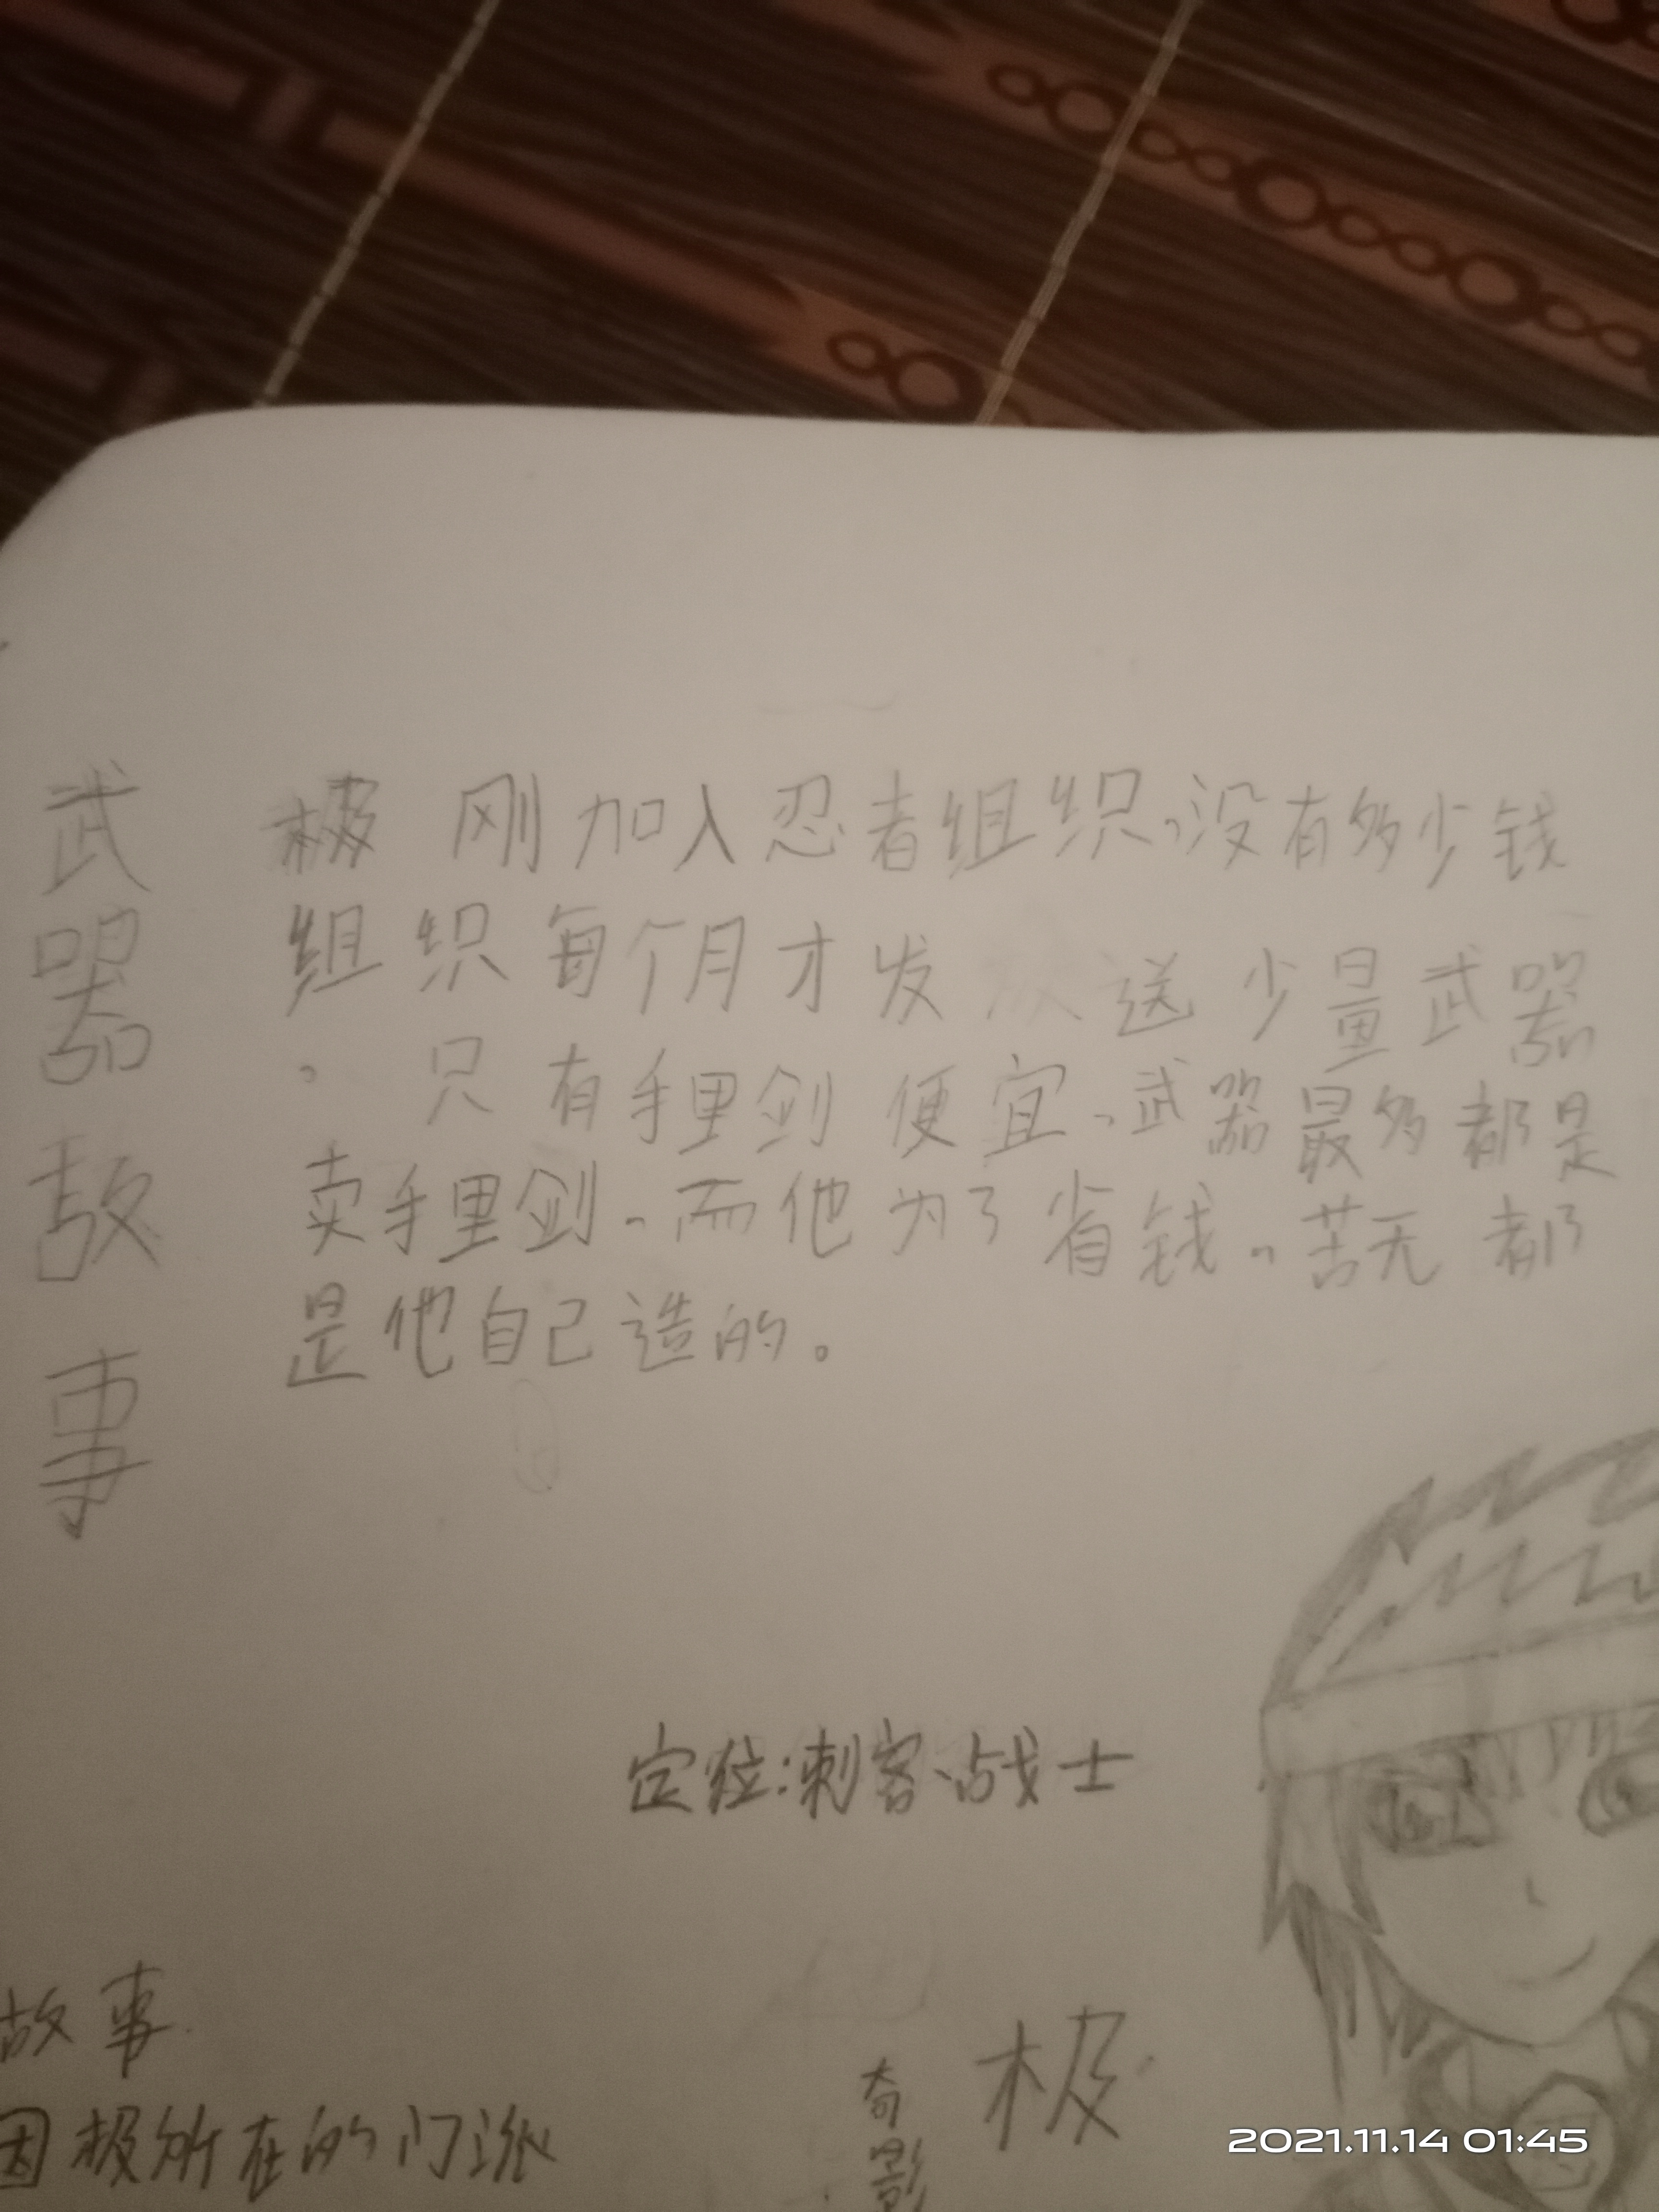 武器故事
极 刚加入忍者组织,没有多少钱
组织每个月才发 送 少量武器
。只有手里剑便宜、武器最多都是
卖手里剑、而他为了省钱。苦无都
是他自己造的。
定位:刺客、战士
故事
因极所在的门派
极
奇影
2021.11.14 01:45